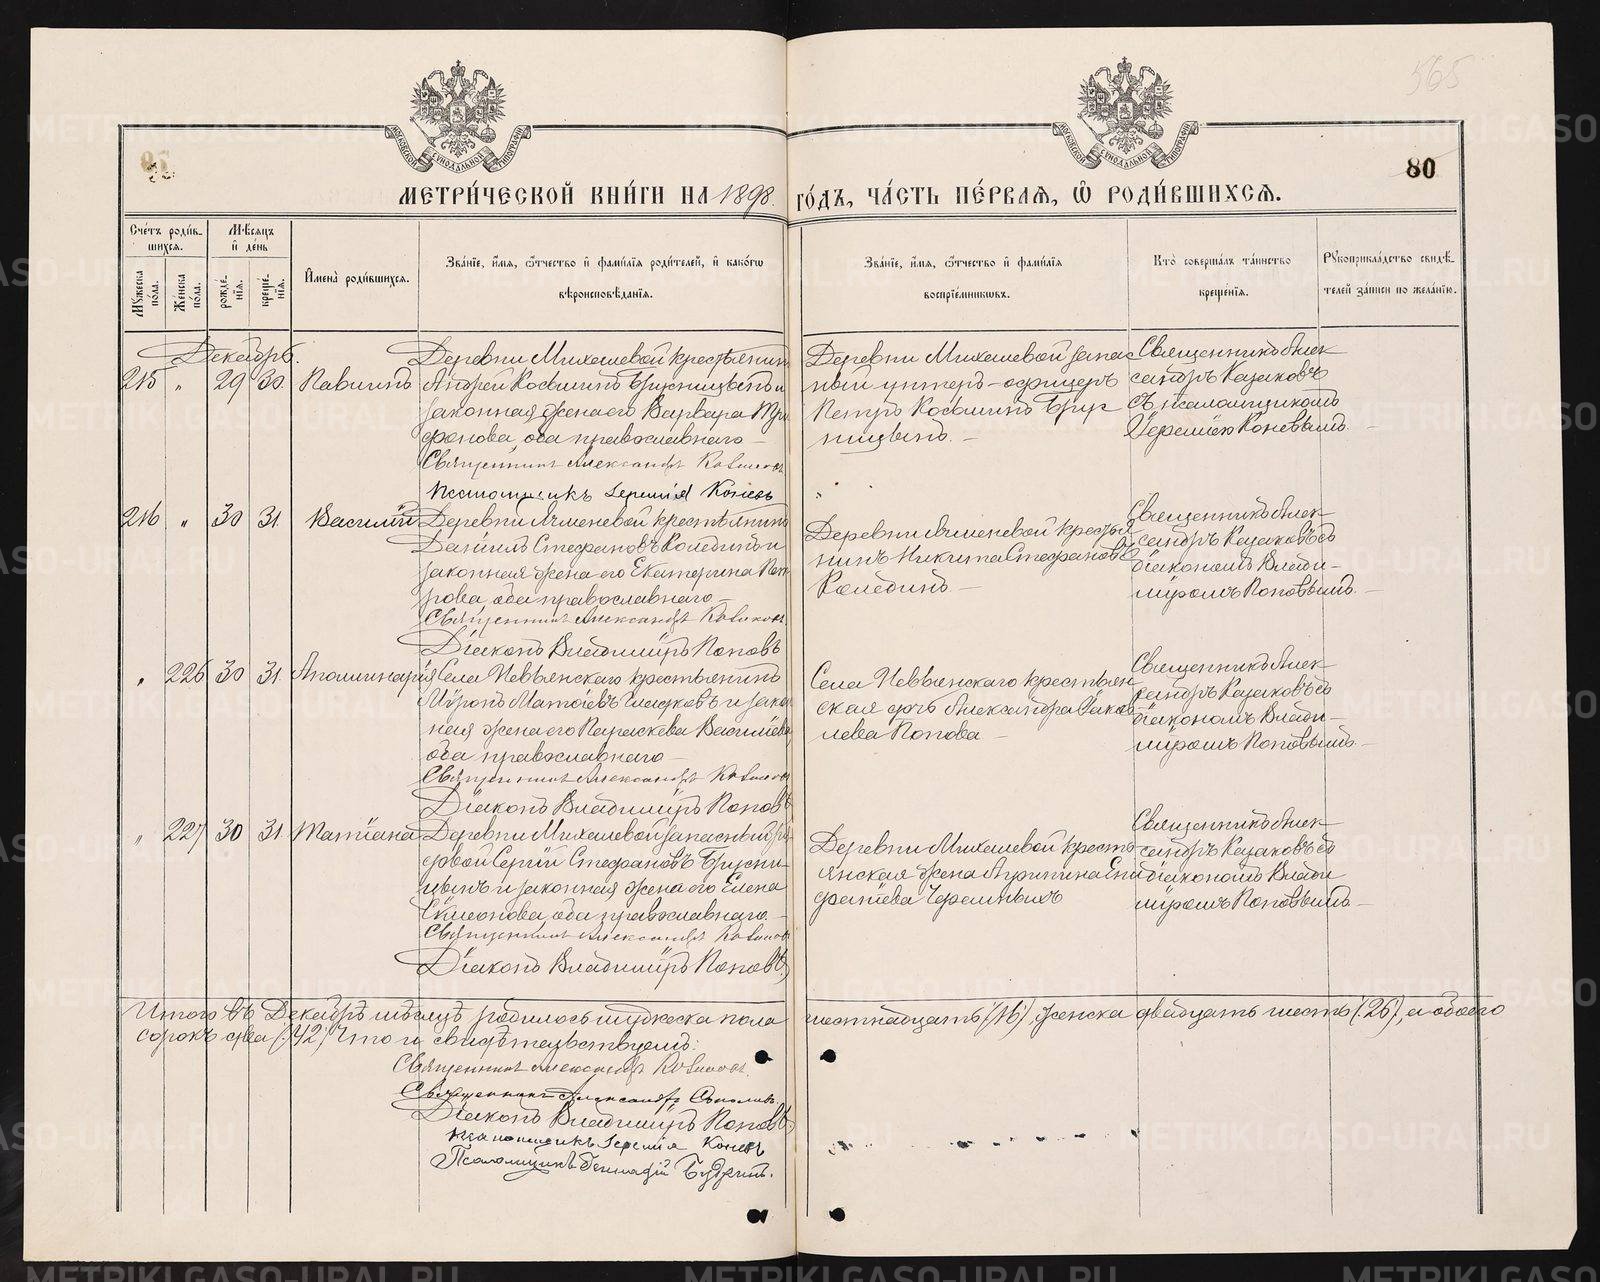 565
80
МЕТРИ́ЧЕСКОЙ КНИ́ГИ НА 1898 ГО́ДЪ, ЧА́СТЬ ПЕ́РВАЯ, Ѡ РОДИ́ВШИХСЯ.
Сче́тъ роди́в-
шихся.
Мѣсяцъ
и҆ де́нь
Мꙋжеска по́ла.
Же́нска по́ла.
рожде́нїя.
креще́нїя.
И҆мена̀ роди́вшихся.
Зва́нїе, и҆́мя, ѻ҆́тчество и҆ фами́лїя роди́телей, и҆ како́гѡ
вѣроисповѣ́данїя.
Зва́нїе, и҆́мя, ѻ҆́тчество и҆ фами́лїя
воспрїе́мникѡвъ.
Кто̀ соверша́лъ та́инство
креще́нїя.
Рꙋкоприкла́дство свидѣ́-
телей за́писи по жела́нїю.
Декабрь.
215 " 29 30 Павлинъ
Деревни Михалевой крестьянинъ
Андрей Косьминъ Брусницынъ и
законная жена его Варвара Три
фонова, оба православнаго —
Священникъ Александръ Казаковъ
Псаломщикъ Іеремія Коневъ
Деревни Михалевой запас
ный унтеръ-офицеръ
Петръ Косьминъ Брус
ницынъ. —
Священникъ Алек
сандръ Казаковъ
съ псаломщикомъ
Іереміею Коневымъ. —
216 " 30 31. Василій
Деревни Ячменевой крестьянинъ
Даніилъ Стефановъ Колединъ и
законная жена его Екатерина Пет
рова, оба православнаго —
Священникъ Александръ Казаковъ
Діаконъ Владиміръ Поповъ
Деревни Ячменевой крестья
нинъ Никита Стефановъ
Колединъ —
Священникъ Алек
сандръ Казаковъ съ
діакономъ Влади-
міромъ Поповымъ. —
" 226 30 31. Аполинарія
Села Невьянскаго крестьянинъ
Міронъ Матѳіевъ Гладковъ и закон
ная жена его Параскева Василіева,
оба православнаго —
Священникъ Александръ Казаковъ
Діаконъ Владиміръ Поповъ
Села Невьянскаго крестьян
ская дчь Александра Іаков
лева Попова —
Священникъ Алек
сандръ Казаковъ съ
діакономъ Влади-
міромъ Поповымъ —
" 227 30 31. Татіана
Деревни Михалевой запасный ря
довой Сергій Стефановъ Брусни-
цынъ и законная жена его Елена
Сѵмеонова, оба православнаго. —
Священникъ Александръ Казаковъ
Діаконъ Владиміръ Поповъ
Деревни Михалевой кресть
янская жена Агрипина Ени
фатіева Черемныхъ
Священникъ Алек
сандръ Казаковъ съ
діакономъ Влади
міромъ Поповымъ —
Итого въ Декабрѣ мѣсяцѣ родилось мужеска пола шестнадцать (16), женска двадцать шесть (26), а обоего
сорокъ два (42) Что и свидѣтельствуемъ:
Священникъ Александръ Казаковъ.
Священникъ Александръ
Діаконъ Владиміръ Поповъ
Псаломщикъ Іеремія Коневъ
Псаломщикъ Геннадій Будринъ.
METRIKI.GASO-URAL.RU